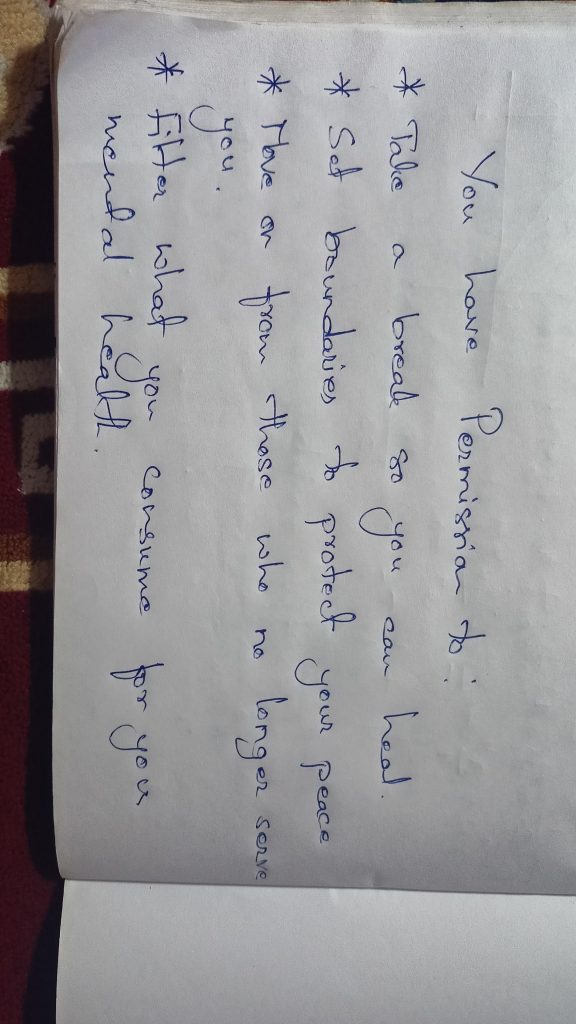 You have Permission to:
* Take a break so you can heal.
* Set boundaries to protect your peace
* Move on from those who no longer serve
you.
* Filter what you consume for you
mental health.